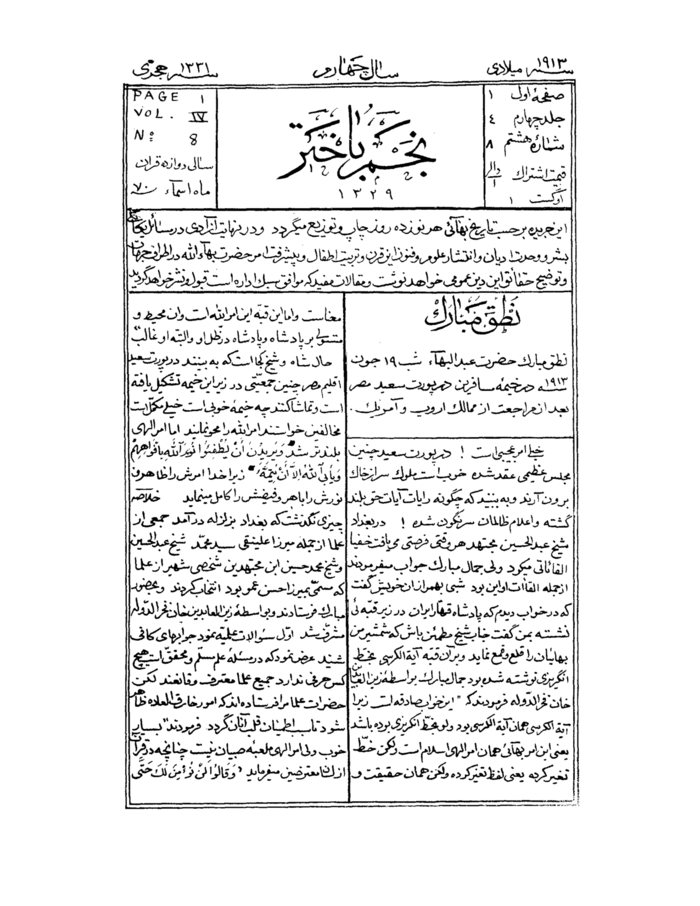 سنه ١٩١٣ میلادی
سال چهارم
سنه ١٣٣١ هجری
صفحهٔ اول ١
جلد چهارم ٤
شمارهٔ هشتم ٨
قیمت اشتراک
اوگست ١
نجم باختر
١٣٢٩
PAGE 1
VOL. IV
No 8
سالی دوازده قران
ماه اسماء ٧٠
این جریده بر حسب تاریخ بهائی هر نوزده روز چاپ و توزیع میگردد و در نهایت آزادی در مسائل
بشر و وحدت ادیان و انتشار علوم و فنون این قرن و تربیت اطفال و پیشرفت امر حضرت بهاءالله در اطراف جهان
و توضیح حقائق این دین عمومی خواهد نوشت و مقالات مفیده که موافق مسلک اداره است قبول و نشر خواهد گردید
نطق مبارک
نطق مبارک حضرت عبدالبهاء شب ١٩ جون
سنه ١٩١٣ در خیمه مسافرین در پورت سعید مصر
بعد از مراجعت از ممالک اروپ و آمریک
خیلی امر عجیبی است ! در پورت سعید چنین
مجلس عظیمی عقد شده خوب است ملوک سر از خاک
برون آرند و به بینند که چگونه رایات آیات حق بلند
گشته و اعلام ظالمان سرنگون شده ! در بغداد
شیخ عبدالحسین مجتهد هر وقتی فرصتی می یافت خفیا
القاآتی میکرد ولی جمال مبارک جواب میفرمودند
از جمله القاآت او این بود شبی بهمرازان خویش گفت
که در خواب دیدم که پادشاه قهار ایران در زیر قبه ئی
نشسته بمن گفت جناب شیخ مطمئن باش که شمشیر من
بهائیان را قلع و قمع نماید و بر آن قبه آیة الکرسی بخط
انگریزی نوشته شده بود جمال مبارک بواسطه زین العابدین
خان فخرالدوله فرمودند که این خواب صادقه است زیرا
آیة الکرسی همان آیة الکرسی بود ولو بخط انگریزی بوده باشد
یعنی این امر بهائی همان امر الهی اسلام است ولکن خط
تغییر کرده یعنی لفظ تغییر کرده ولکن همان حقیقت و
معناست و اما این قبه این امر الله است و آن محیط و
مستولی بر پادشاه و پادشاه در ظل او و البته او غالب
حال شاه و شیخ کجا است که به بینند در پورت سعید
اقلیم مصر چنین جمعیتی در زیر این خیمه تشکیل یافته
است و تماشا کنند چه خیمهٔ خوبی است خیلی مکمل است
مخالفین خواستند امر الله را محو نمایند اما امر الهی
بلندتر شد وَیُریدُونَ اَنْ یُطْفِئُوا نُورَ اللهِ بِاَفْواهِهِمْ
وَیَأْبَی اللهُ اِلّا اَنْ یُتِمَّ نُورَهُ زیرا خدا امرش را ظاهر و
نورش را باهر و فیضش را کامل مینماید خلاصه
چیزی نگذشت که بغداد بزلزله در آمد جمعی از
علما از جمله میرزا علینقی سید محمد شیخ عبدالحسین
و شیخ محمد حسین این مجتهدین شخصی شهیر از علما
که مسمّی بمیرزا حسن عمو بود انتخاب کردند و بحضور
مبارک فرستادند و بواسطه زین العابدین خان فخرالدوله
مشرف شد اول سؤالات علمیه نمود جوابهای کافی
شنید عرض نمود که در مسئله علم مسلم و محقق است هیچ
کس حرفی ندارد جمیع علما معترف و قانعند لکن
حضرات علما مرا فرستاده اند که امور خارق العاده ظاهر
شود تا سبب اطمینان قلب آنان گردد فرمودند بسیار
خوب ولی امر الهی ملعبهٔ صبیان نیست چنانچه در قرآن
از لسان معترضین میفرماید وَقالُوا لَنْ نُؤْمِنَ لَکَ حَتّی